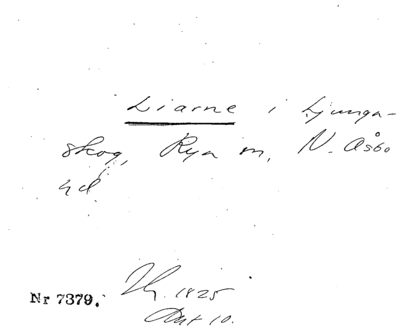 Liarne i Ljunga-
skog, Rya sn, N. Åsbo
hd
Nr 7379. 1825
10.